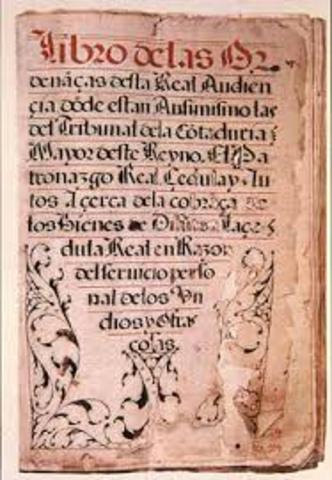 Libro de las Or
denãças desta Real Audien
çia dõde estan Ansimismo las
del Tribunal dela Cõtaduria
Mayor deste Reyno. El Pa
tronazgo Real Çedulay Au
tos Açerca dela cobraça de
los Bienes de
dula Real en Razon
del seruicio perso
nal delos Yn
dios y Otras
cosas.